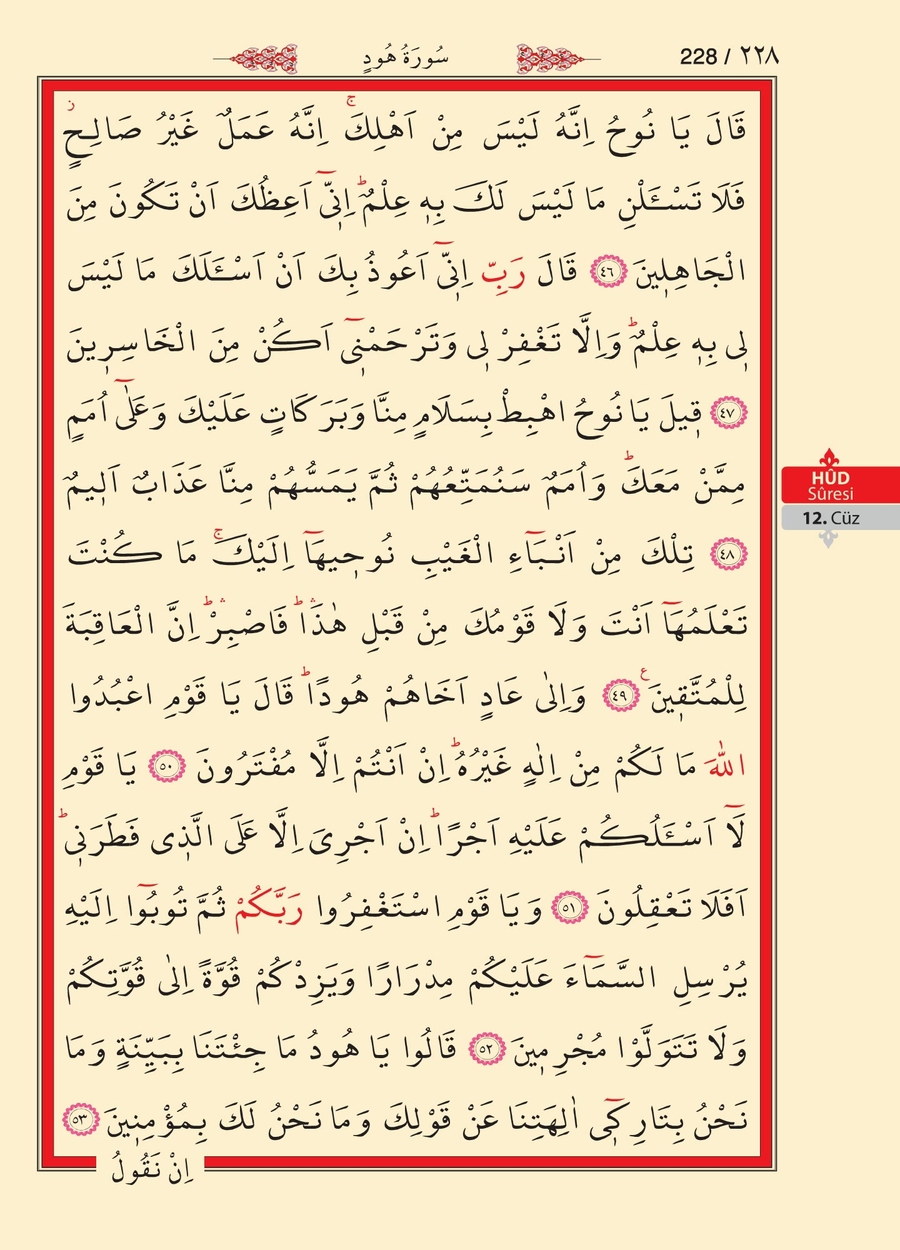 سُورَةُ هُودٍ
228 / ٢٢٨
قَالَ يَا نُوحُ اِنَّهُ لَيْسَ مِنْ اَهْلِكَۚ اِنَّهُ عَمَلٌ غَيْرُ صَالِحٍۘ
فَلَا تَسْـَٔلْنِ مَا لَيْسَ لَكَ بِه۪ عِلْمٌۜ اِنّ۪ٓي اَعِظُكَ اَنْ تَكُونَ مِنَ
الْجَاهِل۪ينَ ٤٦ قَالَ رَبِّ اِنّ۪ٓي اَعُوذُ بِكَ اَنْ اَسْـَٔلَكَ مَا لَيْسَ
ل۪ي بِه۪ عِلْمٌۜ وَاِلَّا تَغْفِرْ ل۪ي وَتَرْحَمْن۪ٓي اَكُنْ مِنَ الْخَاسِر۪ينَ
٤٧ ق۪يلَ يَا نُوحُ اهْبِطْ بِسَلَامٍ مِنَّا وَبَرَكَاتٍ عَلَيْكَ وَعَلٰٓى اُمَمٍ
مِمَّنْ مَعَكَۜ وَاُمَمٌ سَنُمَتِّعُهُمْ ثُمَّ يَمَسُّهُمْ مِنَّا عَذَابٌ اَل۪يمٌ
٤٨ تِلْكَ مِنْ اَنْبَٓاءِ الْغَيْبِ نُوح۪يهَٓا اِلَيْكَۚ مَا كُنْتَ
تَعْلَمُهَٓا اَنْتَ وَلَا قَوْمُكَ مِنْ قَبْلِ هٰذَاۜۛ فَاصْبِرْۜۛ اِنَّ الْعَاقِبَةَ
لِلْمُتَّق۪ينَ۟ ٤٩ وَاِلٰى عَادٍ اَخَاهُمْ هُودًاۜ قَالَ يَا قَوْمِ اعْبُدُوا
اللّٰهَ مَا لَكُمْ مِنْ اِلٰهٍ غَيْرُهُۜ اِنْ اَنْتُمْ اِلَّا مُفْتَرُونَ ٥٠ يَا قَوْمِ
لَٓا اَسْـَٔلُكُمْ عَلَيْهِ اَجْرًاۜ اِنْ اَجْرِيَ اِلَّا عَلَى الَّذ۪ي فَطَرَن۪يۜ
اَفَلَا تَعْقِلُونَ ٥١ وَيَا قَوْمِ اسْتَغْفِرُوا رَبَّكُمْ ثُمَّ تُوبُٓوا اِلَيْهِ
يُرْسِلِ السَّمَٓاءَ عَلَيْكُمْ مِدْرَارًا وَيَزِدْكُمْ قُوَّةً اِلٰى قُوَّتِكُمْ
وَلَا تَتَوَلَّوْا مُجْرِم۪ينَ ٥٢ قَالُوا يَا هُودُ مَا جِئْتَنَا بِبَيِّنَةٍ وَمَا
نَحْنُ بِتَارِك۪ٓي اٰلِهَتِنَا عَنْ قَوْلِكَ وَمَا نَحْنُ لَكَ بِمُؤْمِن۪ينَ ٥٣
اِنْ نَقُولُ
HÛD
Sûresi
12. Cüz